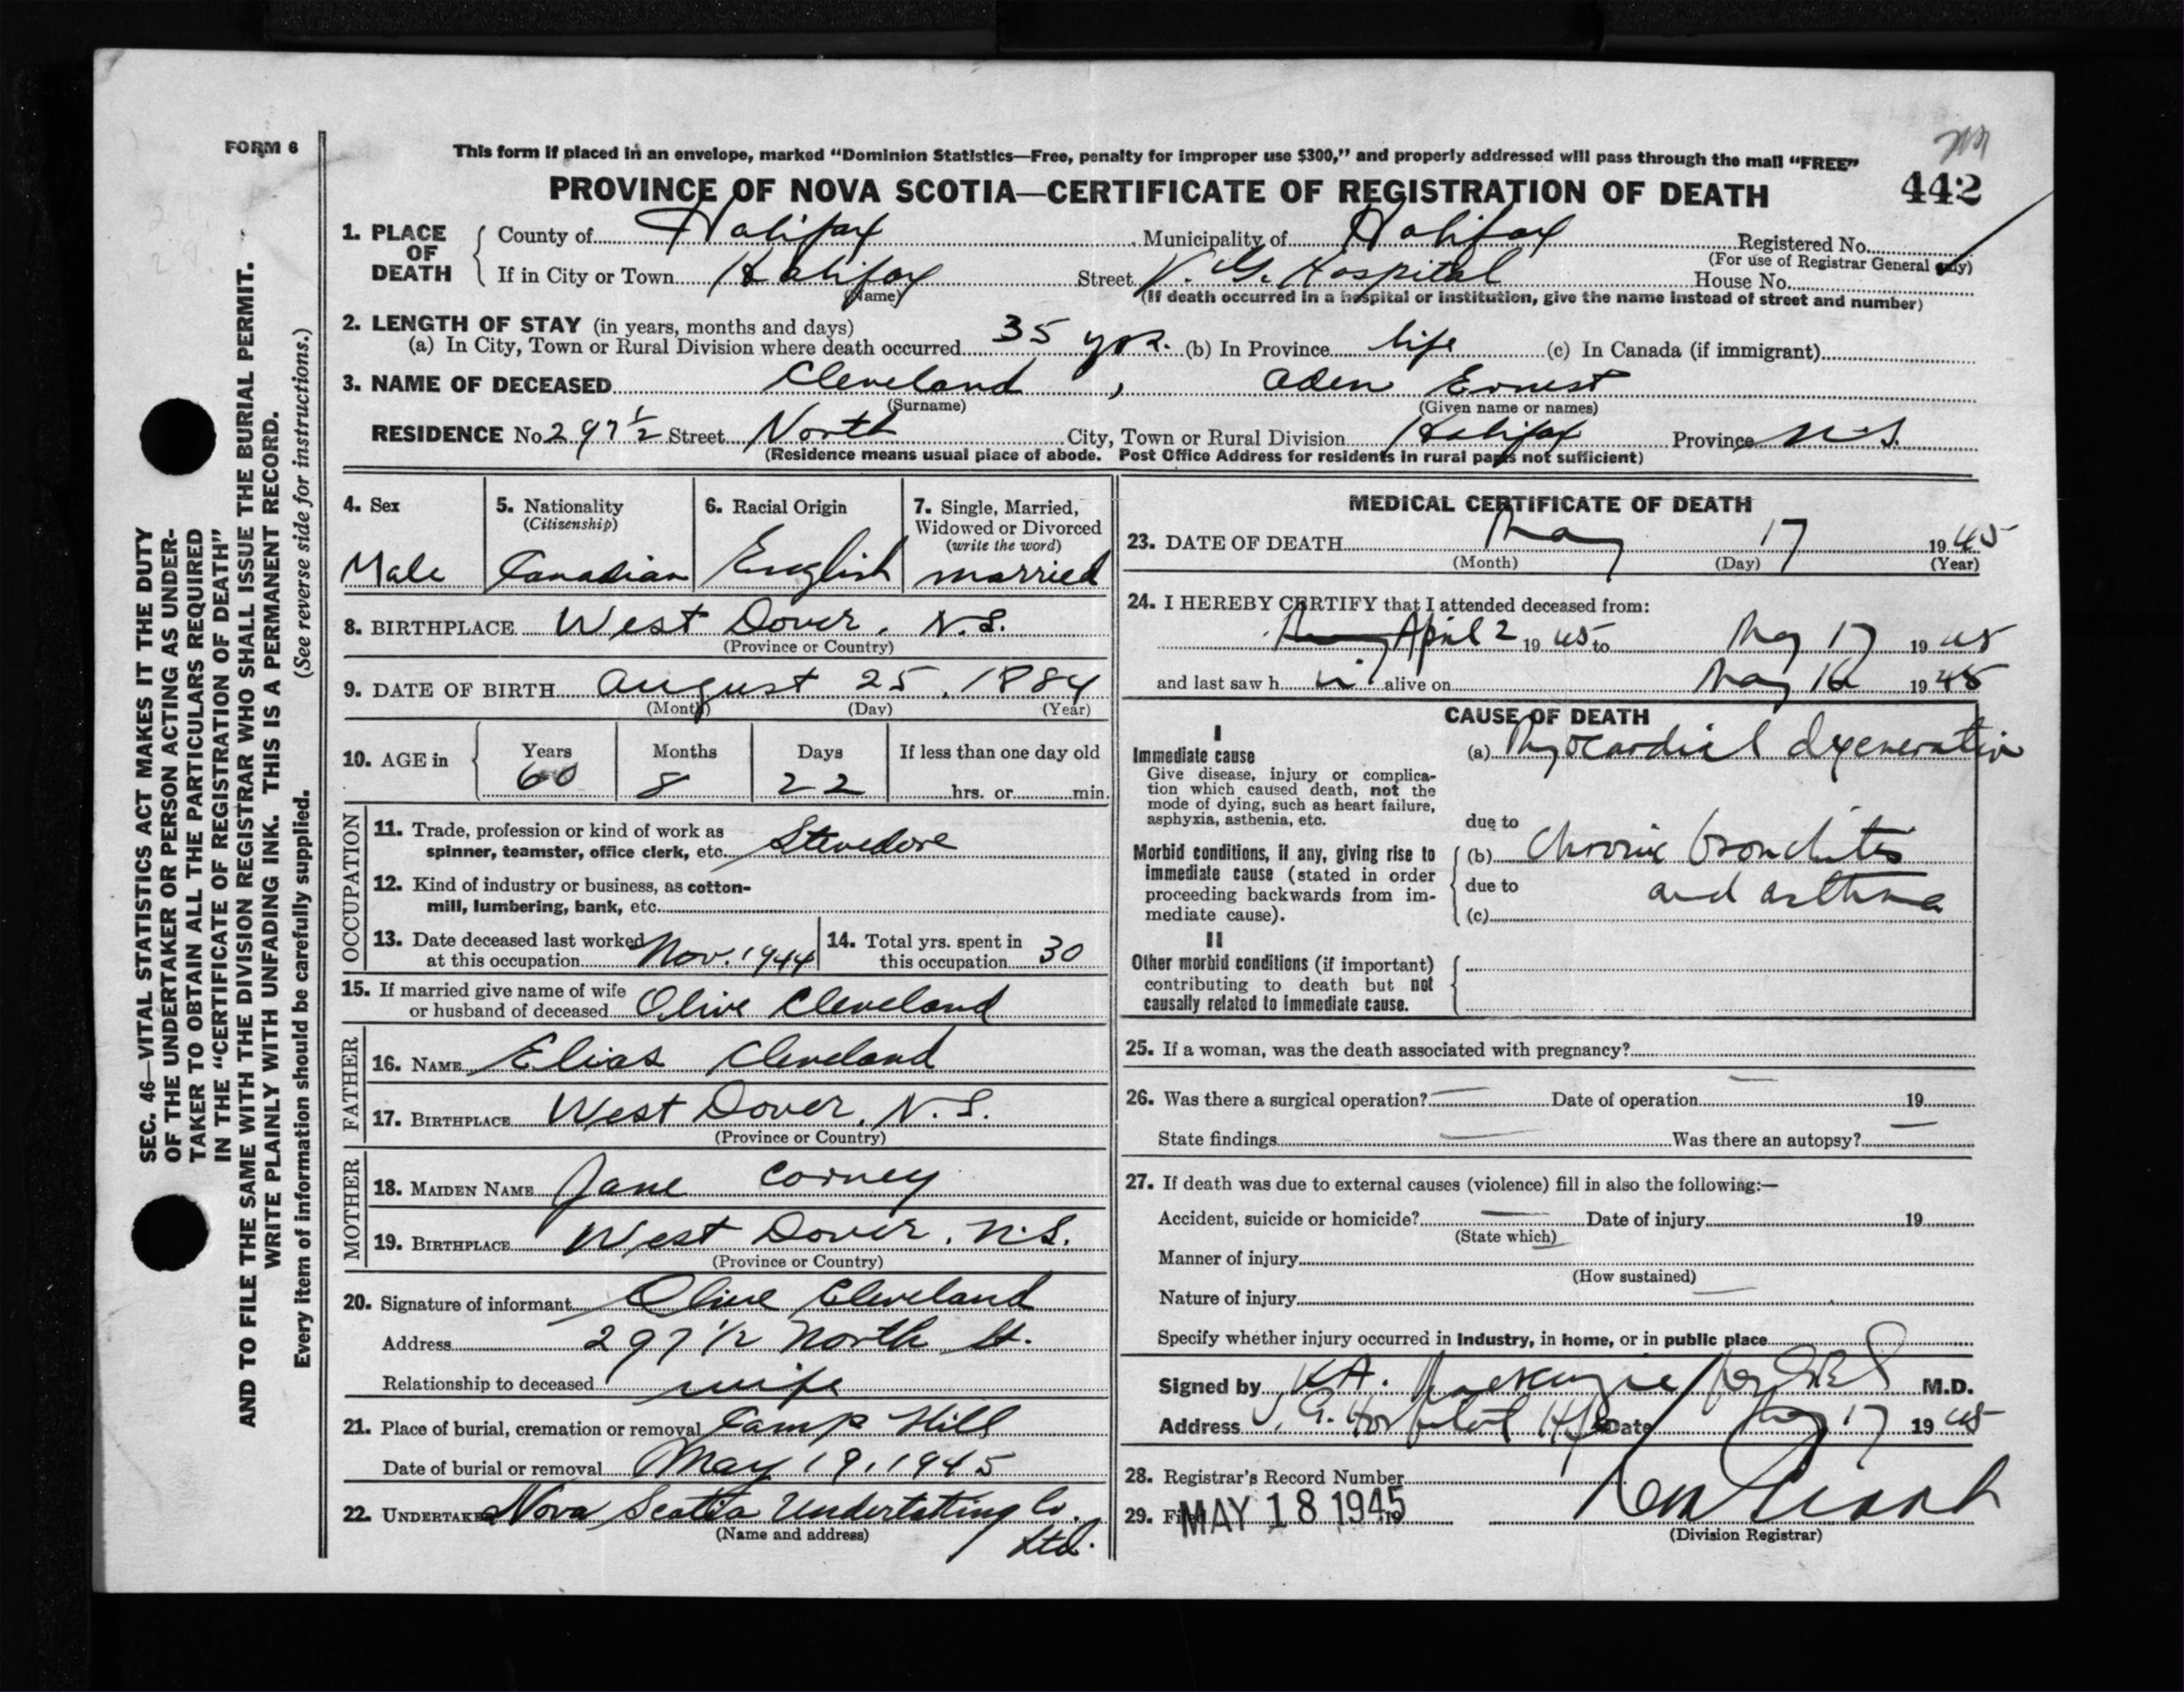 FORM 6
This form if placed in an envelope, marked “Dominion Statistics—Free, penalty for improper use $300,” and properly addressed will pass through the mail “FREE”
PROVINCE OF NOVA SCOTIA—CERTIFICATE OF REGISTRATION OF DEATH 442
SEC. 46—VITAL STATISTICS ACT MAKES IT THE DUTY
OF THE UNDERTAKER OR PERSON ACTING AS UNDER-
TAKER TO OBTAIN ALL THE PARTICULARS REQUIRED
IN THE “CERTIFICATE OF REGISTRATION OF DEATH”
AND TO FILE THE SAME WITH THE DIVISION REGISTRAR WHO SHALL ISSUE THE BURIAL PERMIT.
WRITE PLAINLY WITH UNFADING INK. THIS IS A PERMANENT RECORD.
Every item of information should be carefully supplied. (See reverse side for instructions.)
1. PLACE OF DEATH
County of Halifax Municipality of Halifax Registered No.
(For use of Registrar General only)
If in City or Town Halifax Street V. G. Hospital House No.
(Name) (If death occurred in a hospital or institution, give the name instead of street and number)
2. LENGTH OF STAY (in years, months and days)
(a) In City, Town or Rural Division where death occurred 35 yrs. (b) In Province life (c) In Canada (if immigrant)
3. NAME OF DECEASED Cleveland , Aden Ernest
(Surname) (Given name or names)
RESIDENCE No 297 1/2 Street North City, Town or Rural Division Halifax Province N.S.
(Residence means usual place of abode. Post Office Address for residents in rural parts not sufficient)
4. Sex
Male
5. Nationality
(Citizenship)
Canadian
6. Racial Origin
English
7. Single, Married,
Widowed or Divorced
(write the word)
married
8. BIRTHPLACE West Dover, N.S.
(Province or Country)
9. DATE OF BIRTH August 25, 1884
(Month) (Day) (Year)
10. AGE in Years Months Days If less than one day old
60 8 22 hrs. or min.
OCCUPATION
11. Trade, profession or kind of work as
spinner, teamster, office clerk, etc. Stevedore
12. Kind of industry or business, as cotton-
mill, lumbering, bank, etc.
13. Date deceased last worked
at this occupation Nov. 1944
14. Total yrs. spent in
this occupation 30
15. If married give name of wife
or husband of deceased Olive Cleveland
FATHER
16. NAME Elias Cleveland
17. BIRTHPLACE West Dover, N.S.
(Province or Country)
MOTHER
18. MAIDEN NAME Jane Corney
19. BIRTHPLACE West Dover, N.S.
(Province or Country)
20. Signature of informant Olive Cleveland
Address 297 1/2 North St.
Relationship to deceased wife
21. Place of burial, cremation or removal Camp Hill
Date of burial or removal May 19, 1945
22. UNDERTAKER Nova Scotia Undertaking Co.
(Name and address) Ltd.
MEDICAL CERTIFICATE OF DEATH
23. DATE OF DEATH May 17 1945
(Month) (Day) (Year)
24. I HEREBY CERTIFY that I attended deceased from:
April 2 1945 to May 17 1945
and last saw h im alive on May 16 1945
CAUSE OF DEATH
I
Immediate cause
Give disease, injury or complica-
tion which caused death, not the
mode of dying, such as heart failure,
asphyxia, asthenia, etc.
(a) Myocardial degeneration
due to
Morbid conditions, if any, giving rise to
immediate cause (stated in order
proceeding backwards from im-
mediate cause).
(b) Chronic bronchitis
due to and asthma
(c)
II
Other morbid conditions (if important)
contributing to death but not
causally related to immediate cause.
25. If a woman, was the death associated with pregnancy?
26. Was there a surgical operation? — Date of operation — 19
State findings — Was there an autopsy? —
27. If death was due to external causes (violence) fill in also the following:—
Accident, suicide or homicide? — Date of injury 19
(State which)
Manner of injury
(How sustained)
Nature of injury
Specify whether injury occurred in industry, in home, or in public place
Signed by K.A. MacKenzie / per M.D.
Address V.G. Hospital Hfx Date May 17 1945
28. Registrar's Record Number
29. Filed MAY 18 1945 19
(Division Registrar)